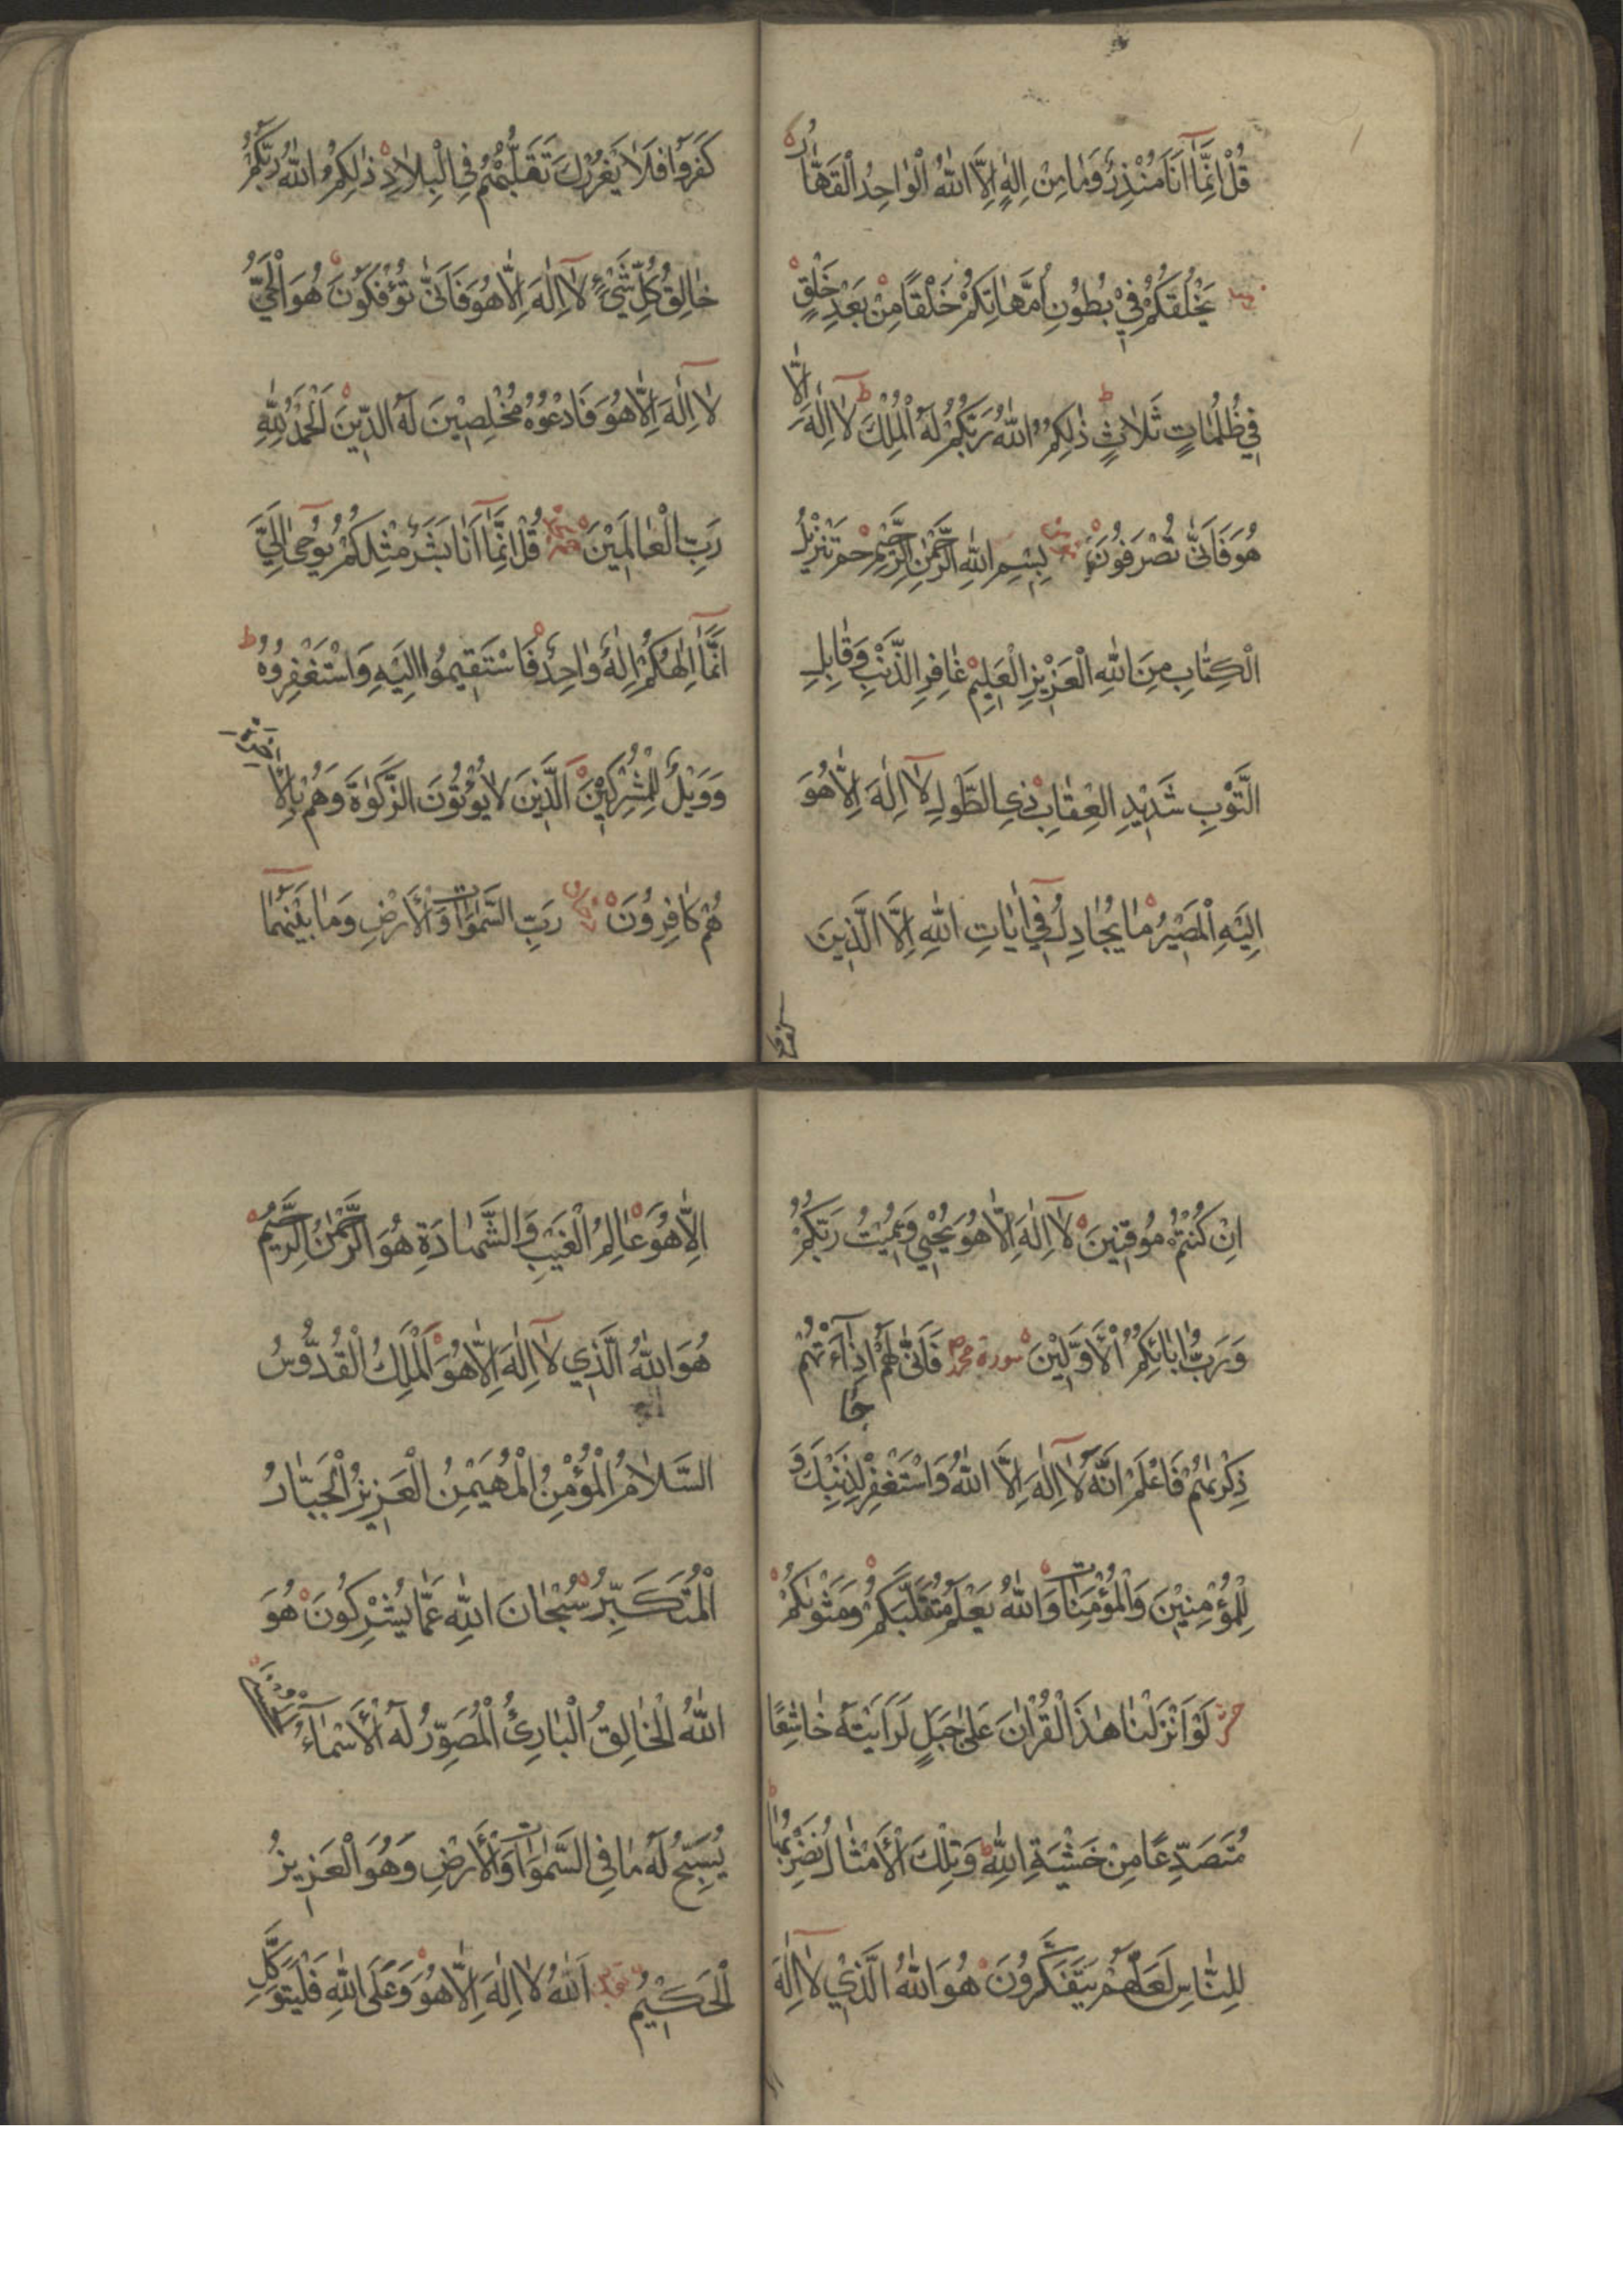 قُلْ اِنَّمَٓا اَنَا۬ مُنْذِرٌ وَمَا مِنْ اِلٰهٍ اِلَّا اللّٰهُ الْوَاحِدُ الْقَهَّارُ
يَخْلُقُكُمْ فِي بُطُونِ اُمَّهَاتِكُمْ خَلْقًا مِنْ بَعْدِ خَلْقٍ
فِي ظُلُمَاتٍ ثَلَاثٍ ذٰلِكُمُ اللّٰهُ رَبُّكُمْ لَهُ الْمُلْكُ لَٓا اِلٰهَ اِلَّا
هُوَ فَاَنّٰى تُصْرَفُونَ بِسْمِ اللّٰهِ الرَّحْمٰنِ الرَّحِيمِ حٰم تَنْزِيلُ
الْكِتَابِ مِنَ اللّٰهِ الْعَزِيزِ الْعَلِيمِ غَافِرِ الذَّنْبِ وَقَابِلِ
التَّوْبِ شَدِيدِ الْعِقَابِ ذِي الطَّوْلِ لَٓا اِلٰهَ اِلَّا هُوَ
اِلَيْهِ الْمَصِيرُ مَا يُجَادِلُ فِٓي اٰيَاتِ اللّٰهِ اِلَّا الَّذِينَ
كَفَرُوا
كَفَرُوا فَلَا يَغْرُرْكَ تَقَلُّبُهُمْ فِي الْبِلَادِ ذٰلِكُمُ اللّٰهُ رَبُّكُمْ
خَالِقُ كُلِّ شَيْءٍ لَٓا اِلٰهَ اِلَّا هُوَ فَاَنّٰى تُؤْفَكُونَ هُوَ الْحَيُّ
لَٓا اِلٰهَ اِلَّا هُوَ فَادْعُوهُ مُخْلِصِينَ لَهُ الدِّينَ اَلْحَمْدُ لِلّٰهِ
رَبِّ الْعَالَمِينَ قُلْ اِنَّمَٓا اَنَا بَشَرٌ مِثْلُكُمْ يُوحٰٓى اِلَيَّ
اَنَّمَٓا اِلٰهُكُمْ اِلٰهٌ وَاحِدٌ فَاسْتَقِيمُوا اِلَيْهِ وَاسْتَغْفِرُوهُ
وَوَيْلٌ لِلْمُشْرِكِينَ اَلَّذِينَ لَا يُؤْتُونَ الزَّكٰوةَ وَهُمْ بِالْاٰخِرَةِ
هُمْ كَافِرُونَ رَبِّ السَّمٰوَاتِ وَالْاَرْضِ وَمَا بَيْنَهُمَا
اِنْ كُنْتُمْ مُوقِنِينَ لَٓا اِلٰهَ اِلَّا هُوَ يُحْيِي وَيُمِيتُ رَبُّكُمْ
وَرَبُّ اٰبَائِكُمُ الْاَوَّلِينَ سورة محمد فَاَنّٰى لَهُمْ اِذَا جَٓاءَتْهُمْ
ذِكْرٰيهُمْ فَاعْلَمْ اَنَّهُ لَٓا اِلٰهَ اِلَّا اللّٰهُ وَاسْتَغْفِرْ لِذَنْبِكَ وَ
لِلْمُؤْمِنِينَ وَالْمُؤْمِنَاتِ وَاللّٰهُ يَعْلَمُ مُتَقَلَّبَكُمْ وَمَثْوٰيكُمْ
حشر لَوْ اَنْزَلْنَا هٰذَا الْقُرْاٰنَ عَلٰى جَبَلٍ لَرَاَيْتَهُ خَاشِعًا
مُتَصَدِّعًا مِنْ خَشْيَةِ اللّٰهِ وَتِلْكَ الْاَمْثَالُ نَضْرِبُهَا
لِلنَّاسِ لَعَلَّهُمْ يَتَفَكَّرُونَ هُوَ اللّٰهُ الَّذِي لَٓا اِلٰهَ
اِلَّا هُوَ عَالِمُ الْغَيْبِ وَالشَّهَادَةِ هُوَ الرَّحْمٰنُ الرَّحِيمُ
هُوَ اللّٰهُ الَّذِي لَٓا اِلٰهَ اِلَّا هُوَ اَلْمَلِكُ الْقُدُّوسُ
السَّلَامُ الْمُؤْمِنُ الْمُهَيْمِنُ الْعَزِيزُ الْجَبَّارُ
الْمُتَكَبِّرُ سُبْحَانَ اللّٰهِ عَمَّا يُشْرِكُونَ هُوَ
اللّٰهُ الْخَالِقُ الْبَارِئُ الْمُصَوِّرُ لَهُ الْاَسْمَٓاءُ الْحُسْنٰى
يُسَبِّحُ لَهُ مَا فِي السَّمٰوَاتِ وَالْاَرْضِ وَهُوَ الْعَزِيزُ
الْحَكِيمُ اَللّٰهُ لَا اِلٰهَ اِلَّا هُوَ وَعَلَى اللّٰهِ فَلْيَتَوَكَّلِ